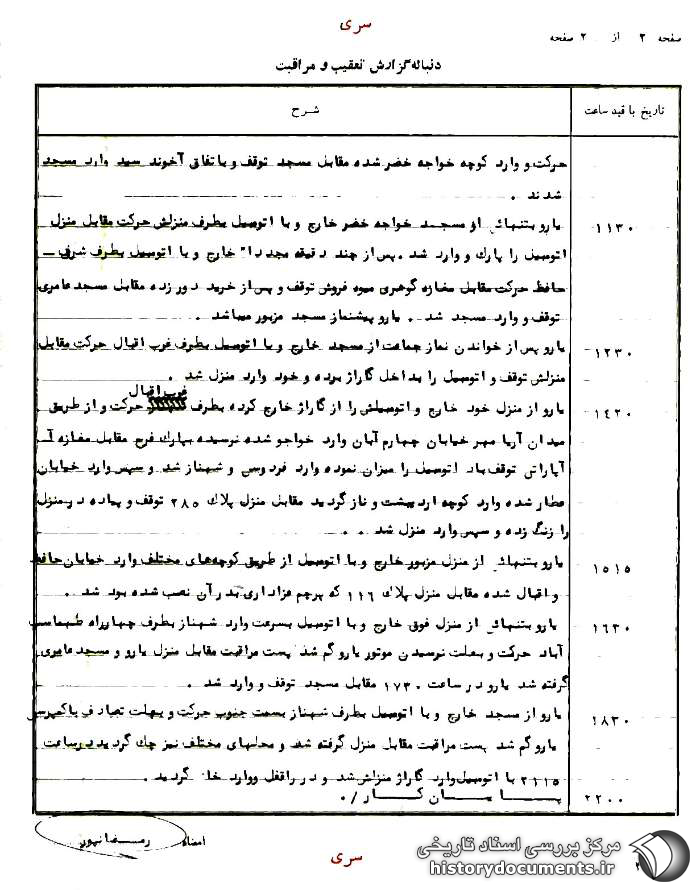 سری
صفحه ۲ از ۲ صفحه
دنباله گزارش تعقیب و مراقبت
تاریخ با قید ساعت
شرح
حرکت و وارد کوچه خواجه خضر شده مقابل مسجد توقف و باتفاق آخوند سید وارد مسجد
شدند .
۱۱۳۰
یارو بتنهائی از مسجد خواجه خضر خارج و با اتومبیل بطرف منزلش حرکت مقابل منزل
اتومبیل را پارک و وارد شد . پس از چند دقیقه مجدداً خارج و با اتومبیل بطرف شرق –
حافظ حرکت مقابل مغازه گوهری میوه فروش توقف و پس از خرید دور زده مقابل مسجد عامری
توقف و وارد مسجد شد . یارو پیشنماز مسجد مزبور میباشد .
۱۲۳۰
یارو پس از خواندن نماز جماعت از مسجد خارج و با اتومبیل بطرف غرب اقبال حرکت مقابل
منزلش توقف و اتومبیل را بداخل گاراژ برده و خود وارد منزل شد .
۱۴۲۰
یارو از منزل خود خارج و اتومبیلش را از گاراژ خارج کرده بطرف غرب اقبال حرکت و از طریق
میدان آریا مهر خیابان چهارم آبان وارد خواجو شده نرسیده بپارک فرح مقابل مغازه آ –
آپاراتی توقف باد اتومبیل را میزان نموده وارد فردوسی و شهناز شد و سپس وارد خیابان
عطار شده وارد کوچه اردیبهشت و ناز گردید مقابل منزل پلاک ۲۸۵ توقف و پیاده در منزل
را زنگ زده و سپس وارد منزل شد . .
۱۵۱۵
یارو بتنهائی از منزل مزبور خارج و با اتومبیل از طریق کوچه‌های مختلف وارد خیابان حافظ
و اقبال شده مقابل منزل پلاک ۱۱۶ که پرچم عزاداری بدر آن نصب شده بود شد .
۱۶۳۰
یارو بتنهائی از منزل فوق خارج و با اتومبیل بسرعت وارد شهناز بطرف چهارراه طهماسب
آباد حرکت و بعلت نرسیدن موتور یارو گم شد پست مراقبت مقابل منزل یارو و مسجد عامری
گرفته شد یارو در ساعت ۱۷۳۰ مقابل مسجد توقف و وارد شد .
۱۸۳۰
یارو از مسجد خارج و با اتومبیل بطرف شهناز بسمت جنوب حرکت و بعلت تصادف باکمپرسی
یارو گم شد پست مراقبت مقابل منزل گرفته شد و محلهای مختلف نیز چک گردید در ساعت
۲۱۱۵ با اتومبیل وارد گاراژ منزلش شد و در را قفل و وارد خانه گردید .
۲۲۰۰
پــایــان کــار ./
امضاء رمضانپور
سری
مرکز بررسی اسناد تاریخی
historydocuments.ir